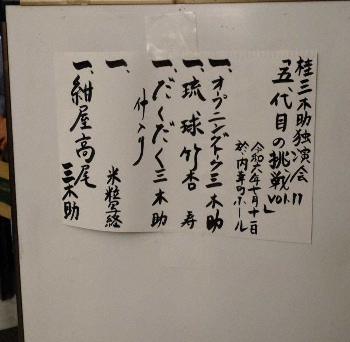 桂三木助独演会
「五代目の挑戦」VOL.11
令和六年七月十一日
於・内幸町ホール
一、オープニングトーク 三木助
一、琉球竹 杏寿
一、だくだく 三木助
仲入り
一、 米粒写経
一、紺屋高尾 三木助